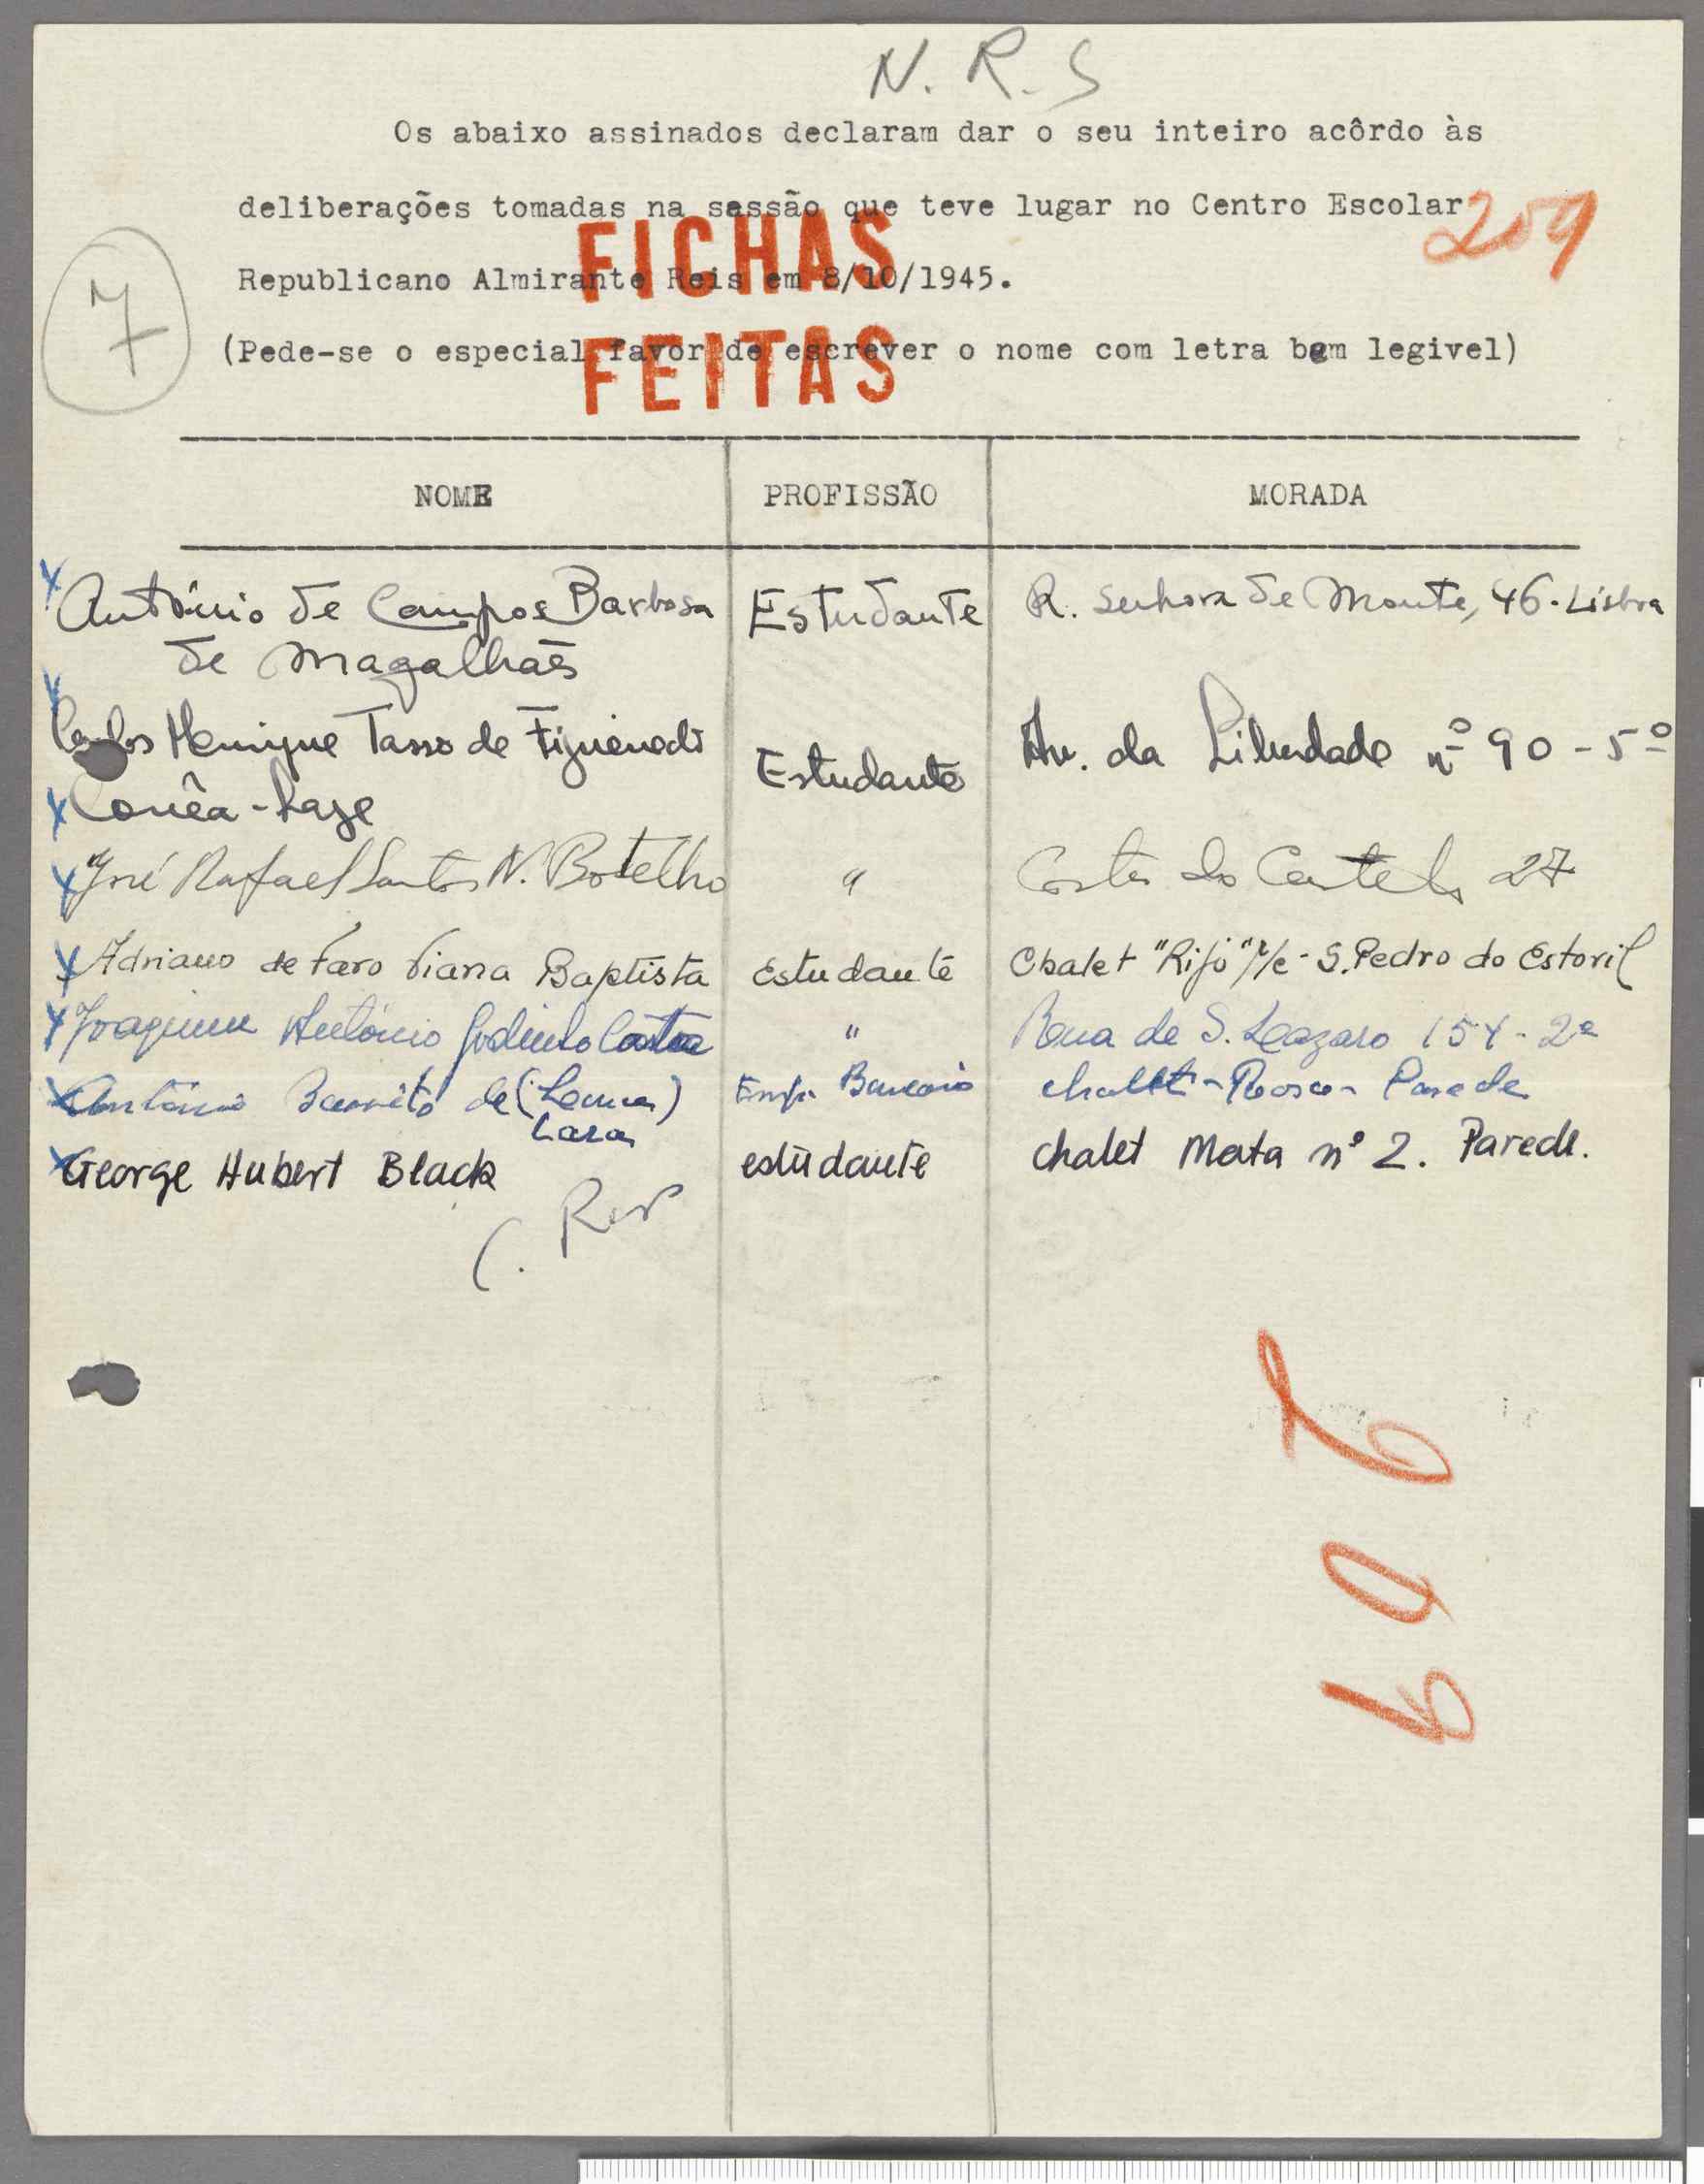 N. R. S
Os abaixo assinados declaram dar o seu inteiro acôrdo às
deliberações tomadas na sessão que teve lugar no Centro Escolar
209
FICHAS
Republicano Almirante Reis em 8/10/1945.
7
(Pede-se o especial favor de escrever o nome com letra bem legivel)
FEITAS
NOME PROFISSÃO MORADA
António de Campos Barbosa Estudante R. Senhora de Monte, 46. Lisboa
de Magalhães
Carlos Henrique Tasso de Figueiredo Estudante Av. da Liberdade nº 90 - 5º
Corrêa - Lage
José Rafael Santos N. Botelho " Costa do Castelo 27
Adriano de Faro Viana Baptista Estudante Chalet "Rijó" r/c - S. Pedro do Estoril
Joaquim António Godinho Costa " Rua de S. Lazaro 154 - 2º
António Barreto de (Lemos) Emp. Bancario chalet - Rosa - Parede
Lara
George Hubert Black estudante chalet Mata nº 2. Parede.
209